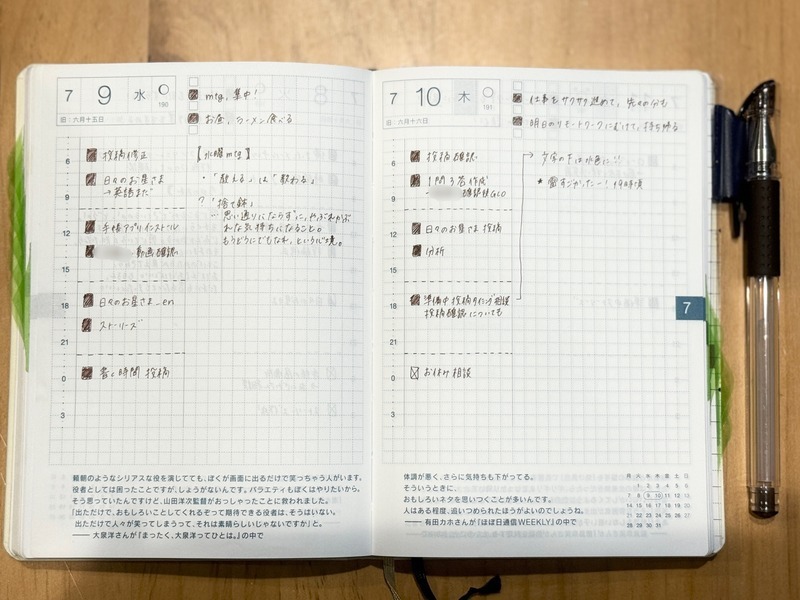 7 9 水
190
旧:六月十五日
mtg, 集中!
お昼, ラーメン食べる
6
9
12
15
18
21
0
3
投稿修正
日々のお星さま
→英語まで
手帳アプリインストール
動画確認
日々のお星さま_en
ストーリーズ
書く時間 投稿
【水曜mtg】
・「敢える」は「敢わる」
?「捨て鉢」
… 思い通りにならずに、やぶれかぶ
れな気持ちになること。
もうどうにでもなれ、という心境。
報朝のようなシリアスな役を演じてても、ぼくが画面に出るだけで笑っちゃう人がいます。
役者としては困ったことですが、しょうがないんです。バラエティもぼくはやりたいから。
そう思っていたんですけど、山田洋次監督がおっしゃったことに救われました。
「出ただけで、おもしろいことしてくれるぞって期待できる役者は、そうはいない。
出ただけで人々が笑ってしまうって、それは素晴らしいじゃないですか」と。
── 大泉洋さんが『まったく、大泉洋ってひとは。』の中で
7 10 木
191
旧:六月十六日
仕事をサクサク進めて, 先々の分も
明日のリモートワークにむけて, 持ち帰る
6
9
12
15
18
21
0
3
投稿確認
1問3答作成
確認後GO
日々のお星さま 投稿
分析
準備中 投稿タイミング相談
投稿確認についても
お休み相談
文字の下は水色に!!
★ 雷すごかったー! 19時頃
7
体調が悪く、さらに気持ちも下がってる。
そういうときに、
おもしろいネタを思いつくことが多いんです。
人はある程度、追いつめられたほうがよいのでしょうね。
── 有田カホさんが『ほぼ日通信WEEKLY』の中で
月 火 水 木 金 土 日
1 2 3 4 5 6
7 8 9 10 11 12 13
14 15 16 17 18 19 20
21 22 23 24 25 26 27
28 29 30 31